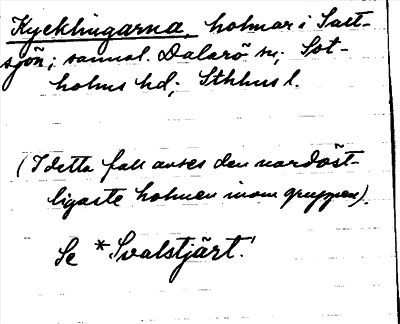 Kycklingarna, holmar i Salt-
sjön; samml. Dalarö sn; Sot-
holms hd; Sthlms l.
(I detta fall avses den nordöst-
ligaste holmen inom gruppen).
Se *Svalstjärt.